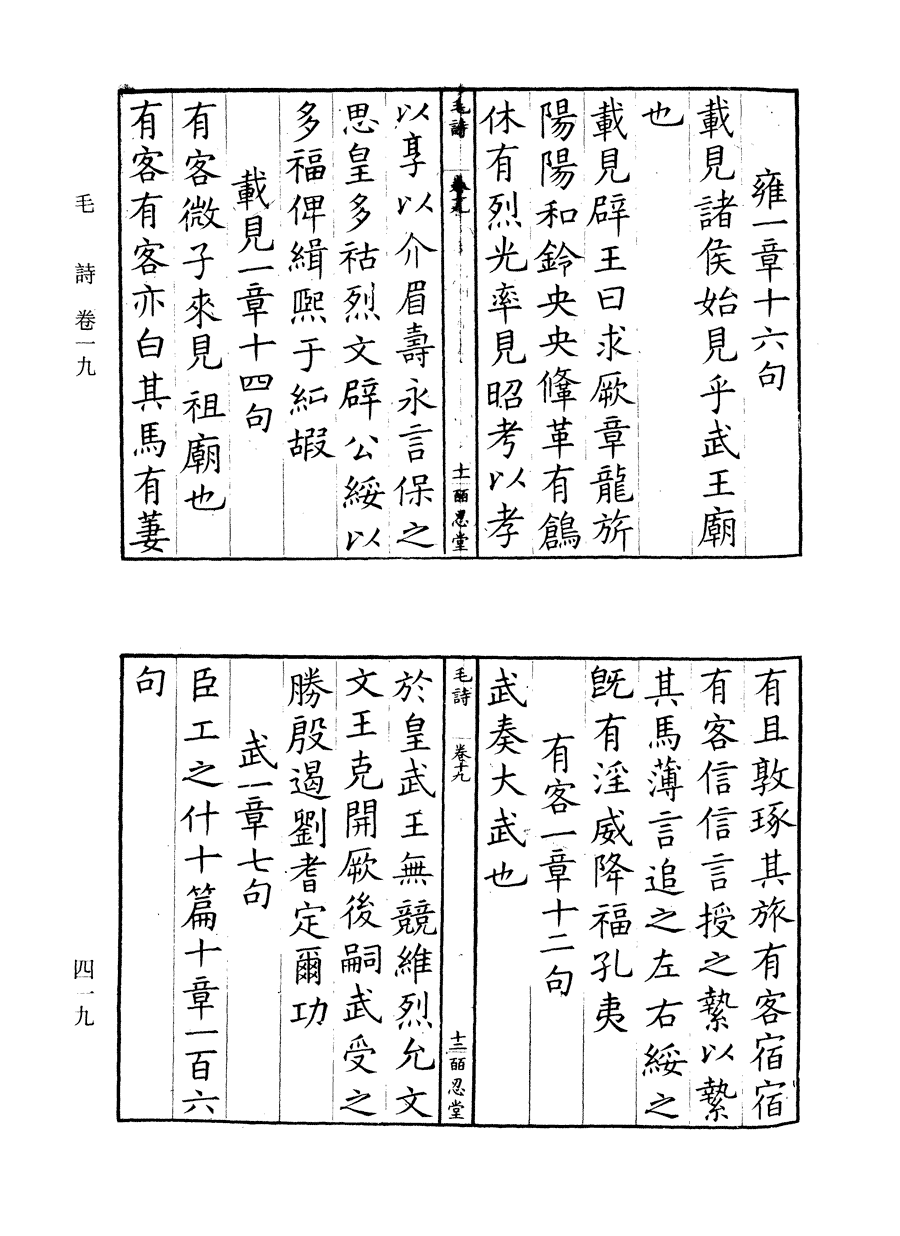 雍一章十六句
載見諸侯始見乎武王廟
也
載見辟王曰求厥章龍旂
陽陽和鈴央央鞗革有鶬
休有烈光率見昭考以孝
毛詩 卷十九 十一 皕忍堂
以享以介眉壽永言保之
思皇多祜烈文辟公綏以
多福俾緝熙于紜嘏
載見一章十四句
有客微子來見祖廟也
有客有客亦白其馬有萋
毛詩 卷一九
有且敦琢其旅有客宿宿
有客信信言授之縶以縶
其馬薄言追之左右綏之
旣有淫威降福孔夷
有客一章十二句
武奏大武也
毛詩 卷十九 十二 皕忍堂
於皇武王無競維烈允文
文王克開厥後嗣武受之
勝殷遏劉耆定爾功
武一章七句
臣工之什十篇十章一百六
句
四一九